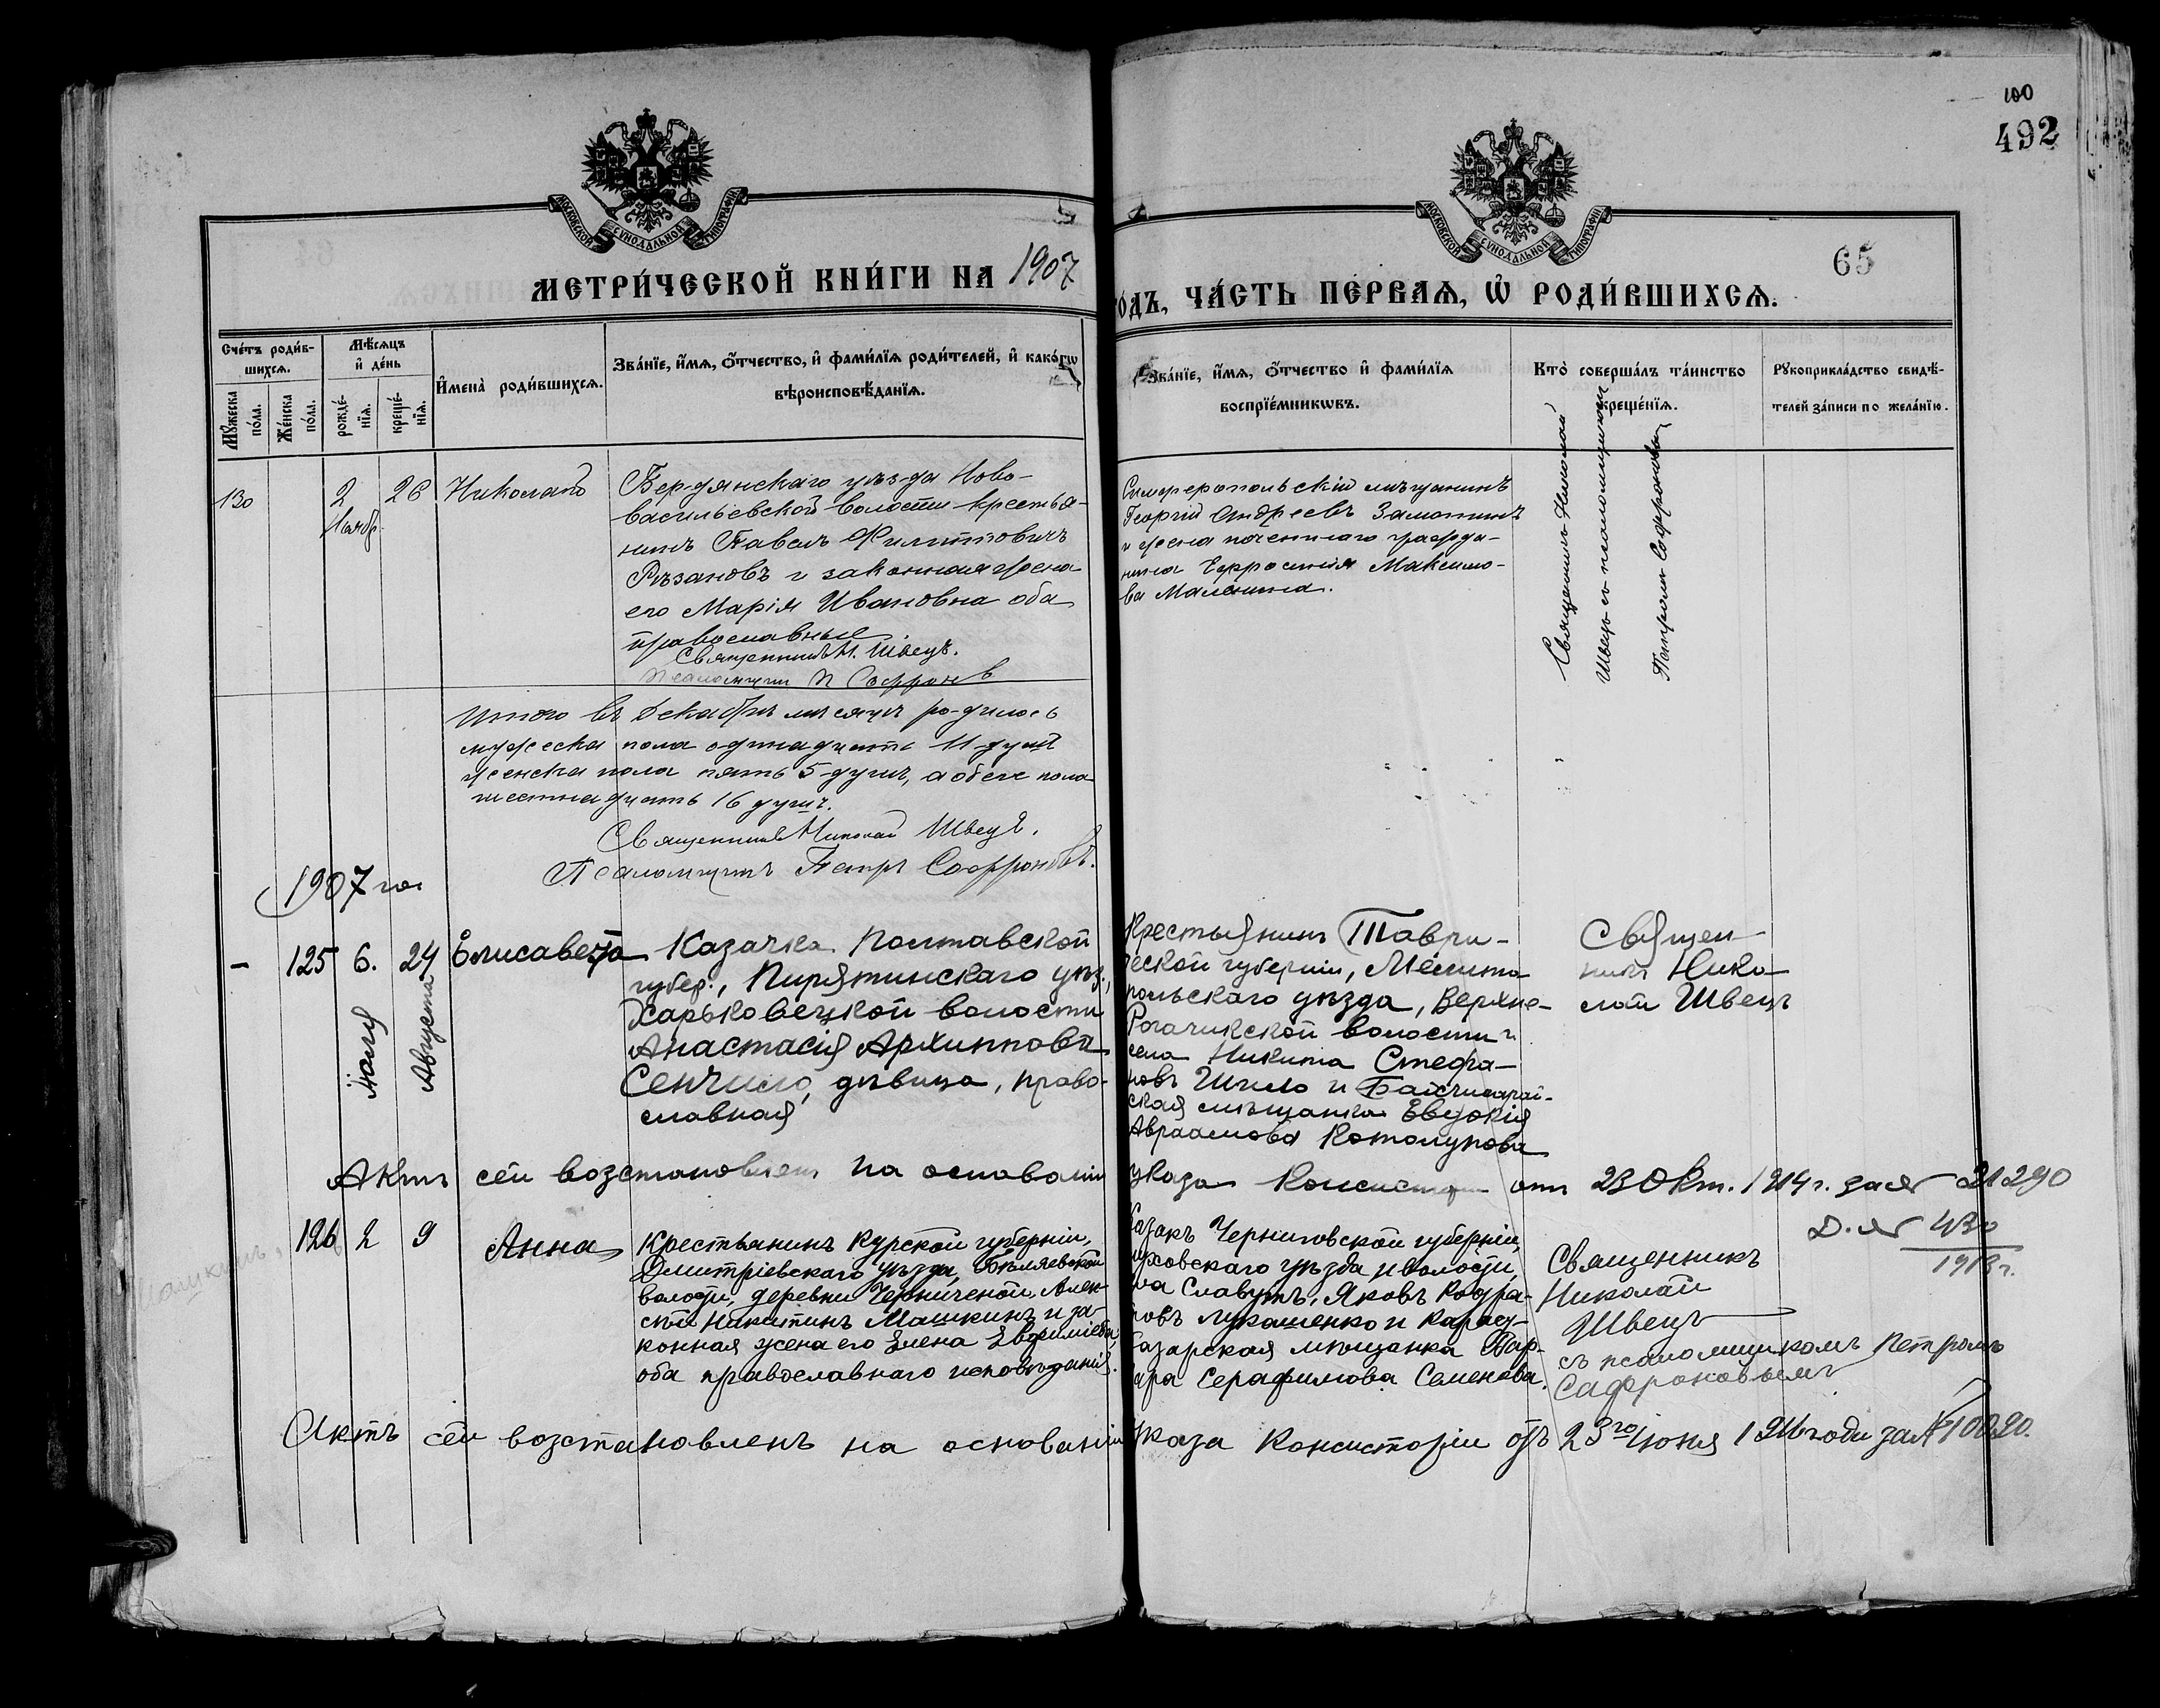 100
492
МОСКОВСКОЙ СѴНОДАЛЬНОЙ ТИПОГРАФІИ
МОСКОВСКОЙ СѴНОДАЛЬНОЙ ТИПОГРАФІИ
65
МЕТРИ́ЧЕСКОЙ КНИ́ГИ НА 1907
ГО́ДЪ, ЧА́СТЬ ПЕ́РВАѦ, Ѡ҆ РОДИ́ВШИХСѦ.
Сче́тъ роди́в-
шихсѧ.
Мꙋ́жеска по́ла.
Же́нска по́ла.
Мѣ́сѧцъ и҆ де́нь
рожде́-
нїѧ.
креще́-
нїѧ.
И҆мена̀ роди́вшихсѧ.
Зва́нїе, и҆́мѧ, ѻ҆́тчество, и҆ фами́лїѧ роди́телей, и҆ како́гѡ
вѣроисповѣ́данїѧ.
Зва́нїе, и҆́мѧ, ѻ҆́тчество и҆ фами́лїѧ
воспрїе́мникѡвъ.
Кто̀ соверша́лъ та́инство
креще́нїѧ.
Рꙋкоприкла́дство свидѣ́-
телей за́писи по жела́нїю.
130
2
Ноябр.
26
Николай
Бердянскаго уѣзда Ново-
васильевской волости крестья-
нинъ Павелъ Филипповичъ
Рѣзановъ и законная жена
его Марія Ивановна оба
православные
Священникъ Н. Швецъ.
Псаломщикъ П Софронов
Симферопольскій мѣщанинъ
Георгій Андреевъ Замотинъ
и жена почетнаго гражда-
нина Евфросинія Максимо-
ва Маленина.
Священникъ Николай
Швецъ съ псаломщикомъ
Петромъ Софроновымъ
Итого въ Декабрѣ мѣсяцѣ родилось
мужеска пола одинадцать 11 душъ
женска пола пять 5 душъ, а обоего пола
шестнадцать 16 душъ.
Священникъ Николай Швецъ.
Псаломщикъ Петръ Софроновъ.
1907 год
-
125
6.
Іюля
24
Августа
Елисавета
Казачка Полтавской
губер., Пирятинскаго уѣз.,
Харьковецкой волости
Анастасія Архиппова
Сенчило, дѣвица, право-
славная
Крестьянинъ Таври-
ческой губерніи, Мелито-
польскаго уѣзда, Верхне-
Рогачикской волости и
села Никита Стефа-
новъ Шило и Бахчисарай-
ская мѣщанка Евдокія
Авраамова Котолупова
Священ-
никъ Нико-
лай Швецъ
Актъ сей возстановленъ на основаніи указа Консисторіи отъ 23 Окт. 1914 г. за № 21290
Д. № 430
1913 г.
126
2
9
Анна
Крестьянинъ Курской губерніи,
Дмитріевскаго уѣзда, Бѣляевской
волости, деревни Черниченой Алек-
сѣй Никитинъ Машкинъ и за-
конная жена его Елена Евфиміева,
оба православнаго исповѣданія.
Казакъ Черниговской губерніи,
Глуховскаго уѣзда и волости,
села Слаутъ, Яковъ Кодра-
товъ Лукашенко и Карасу-
базарская мѣщанка Вар-
вара Серафимова Семенова.
Священникъ
Николай
Швецъ
съ псаломщикомъ Петромъ
Сафроновымъ
Актъ сей возстановленъ на основаніи указа Консисторіи отъ 23го Іюня 1916 года за № 10020.